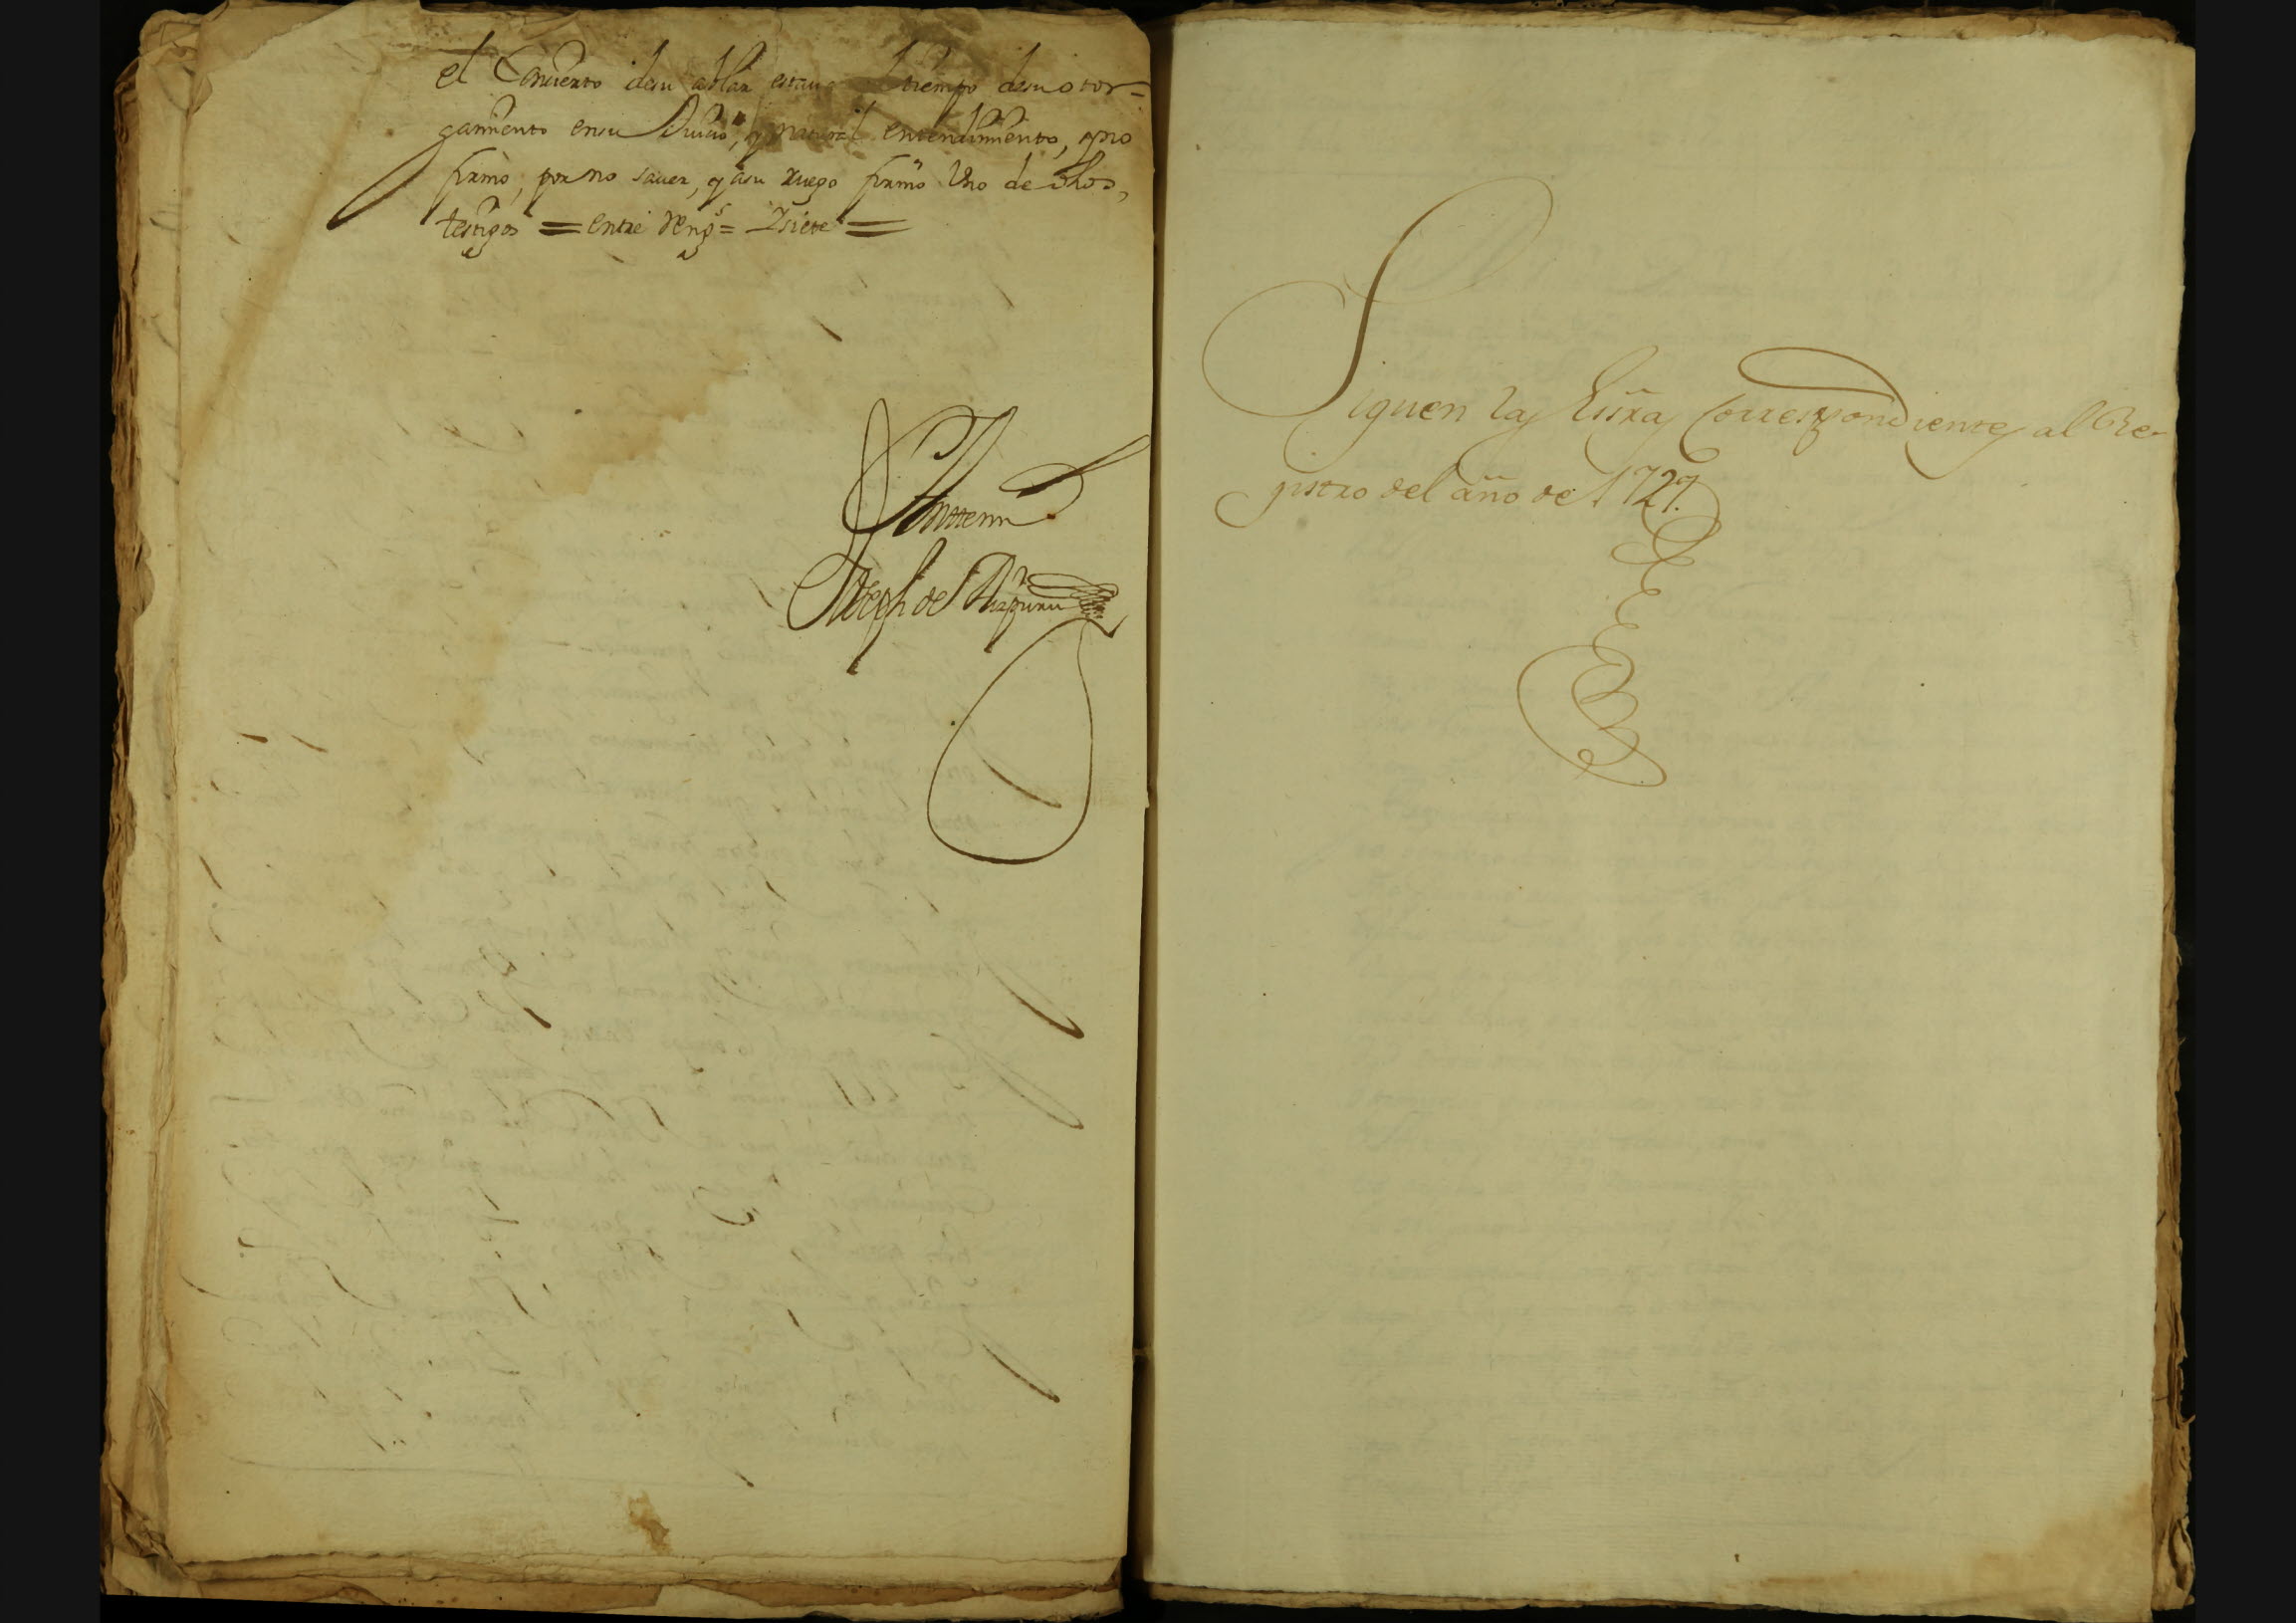 el Conuierto desu ablar estaua al tiempo desuotor=
gamiento ensu Juicio, y natural entendimiento, y no
firmò, por no sauer, y asu ruego firmò Vno de dhos,
testigos = entre Reng.s = Isiete =
Antemi
Joseph de Aizpuru
Siguen las Essras Correspondientes al Re-
gistro del año de 1727.